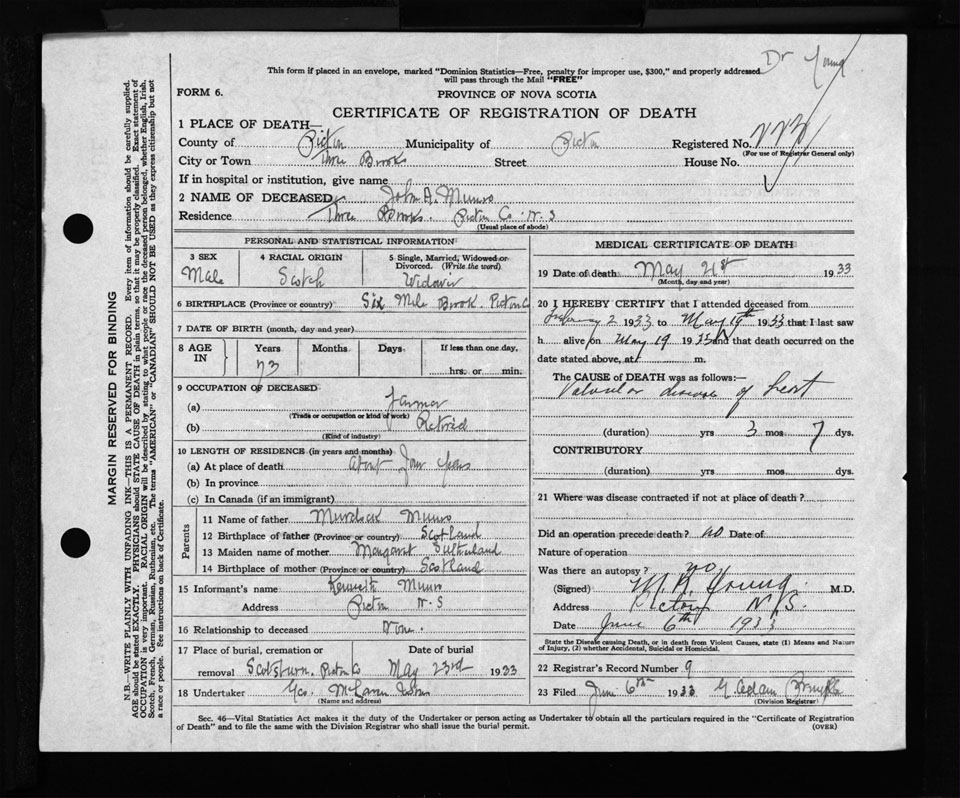 Dr Young
This form if placed in an envelope, marked "Dominion Statistics—Free, penalty for improper use, $300," and properly addressed
will pass through the Mail "FREE"
FORM 6.
PROVINCE OF NOVA SCOTIA
CERTIFICATE OF REGISTRATION OF DEATH
1 PLACE OF DEATH—
County of Pictou Municipality of Pictou Registered No.
(For use of Registrar General only)
City or Town Three Brooks Street House No.
If in hospital or institution, give name
2 NAME OF DECEASED John A. Munro
Residence Three Brooks. Pictou Co. N. S
(Usual place of abode)
PERSONAL AND STATISTICAL INFORMATION
3 SEX 4 RACIAL ORIGIN 5 Single, Married, Widowed or
Divorced. (Write the word)
Male Scotch Widower
6 BIRTHPLACE (Province or country) Six Mile Brook. Pictou Co
7 DATE OF BIRTH (month, day and year)
8 AGE IN Years Months Days If less than one day,
73 hrs. or min.
9 OCCUPATION OF DECEASED
(a) Farmer
(Trade or occupation or kind of work)
(b) Retired
(Kind of industry)
10 LENGTH OF RESIDENCE (in years and months)
(a) At place of death about Years
(b) In province
(c) In Canada (if an immigrant)
Parents
11 Name of father Murdock Munro
12 Birthplace of father (Province or country) Scotland
13 Maiden name of mother Margaret Sutherland
14 Birthplace of mother (Province or country) Scotland
15 Informant's name Kenneth Munro
Address Pictou N. S
16 Relationship to deceased None.
17 Place of burial, cremation or Date of burial
removal Scotsburn. Pictou Co May 23rd 1933
18 Undertaker Geo. McLaren
(Name and address)
MEDICAL CERTIFICATE OF DEATH
19 Date of death May 21st 1933
(Month, day and year)
20 I HEREBY CERTIFY that I attended deceased from
2 1933 to May 19th 1933 that I last saw
h alive on May 19 1933 and that death occurred on the
date stated above, at m.
The CAUSE of DEATH was as follows:—
Valvular disease of heart
(duration) yrs 3 mos 7 dys.
CONTRIBUTORY
(duration) yrs mos dys.
21 Where was disease contracted if not at place of death?
Did an operation precede death? no Date of
Nature of operation
Was there an autopsy? no
(Signed) Young M.D.
Address Pictou N.S.
Date June 6th 1933
State the Disease causing Death, or in death from Violent Causes, state (1) Means and Nature
of Injury, (2) whether Accidental, Suicidal or Homicidal.
22 Registrar's Record Number 9
23 Filed June 6th 1933
(Division Registrar)
Sec. 46—Vital Statistics Act makes it the duty of the Undertaker or person acting as Undertaker to obtain all the particulars required in the "Certificate of Registration
of Death" and to file the same with the Division Registrar who shall issue the burial permit.
(OVER)
MARGIN RESERVED FOR BINDING
N.B.—WRITE PLAINLY WITH UNFADING INK—THIS IS A PERMANENT RECORD. Every item of information should be carefully supplied.
AGE should be stated EXACTLY. PHYSICIANS should STATE CAUSE OF DEATH in plain terms, so that it may be properly classified. Exact statement of
OCCUPATION is very important. RACIAL ORIGIN will be described by stating to what people or race the deceased person belonged, whether English, Irish,
Scotch, French, German, Russian, Ruthenian, etc. The terms "AMERICAN" or "CANADIAN" SHOULD NOT BE USED as they express citizenship but not
a race or people. See instructions on back of Certificate.